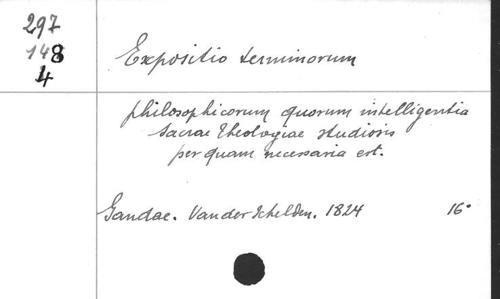 297
148
4
Expositio terminorum
philosophicorum quorum intelligentia
Sacrae Theologiae studiosis
per quam necessaria est.
Gandae. Vander Schelden. 1824 16°